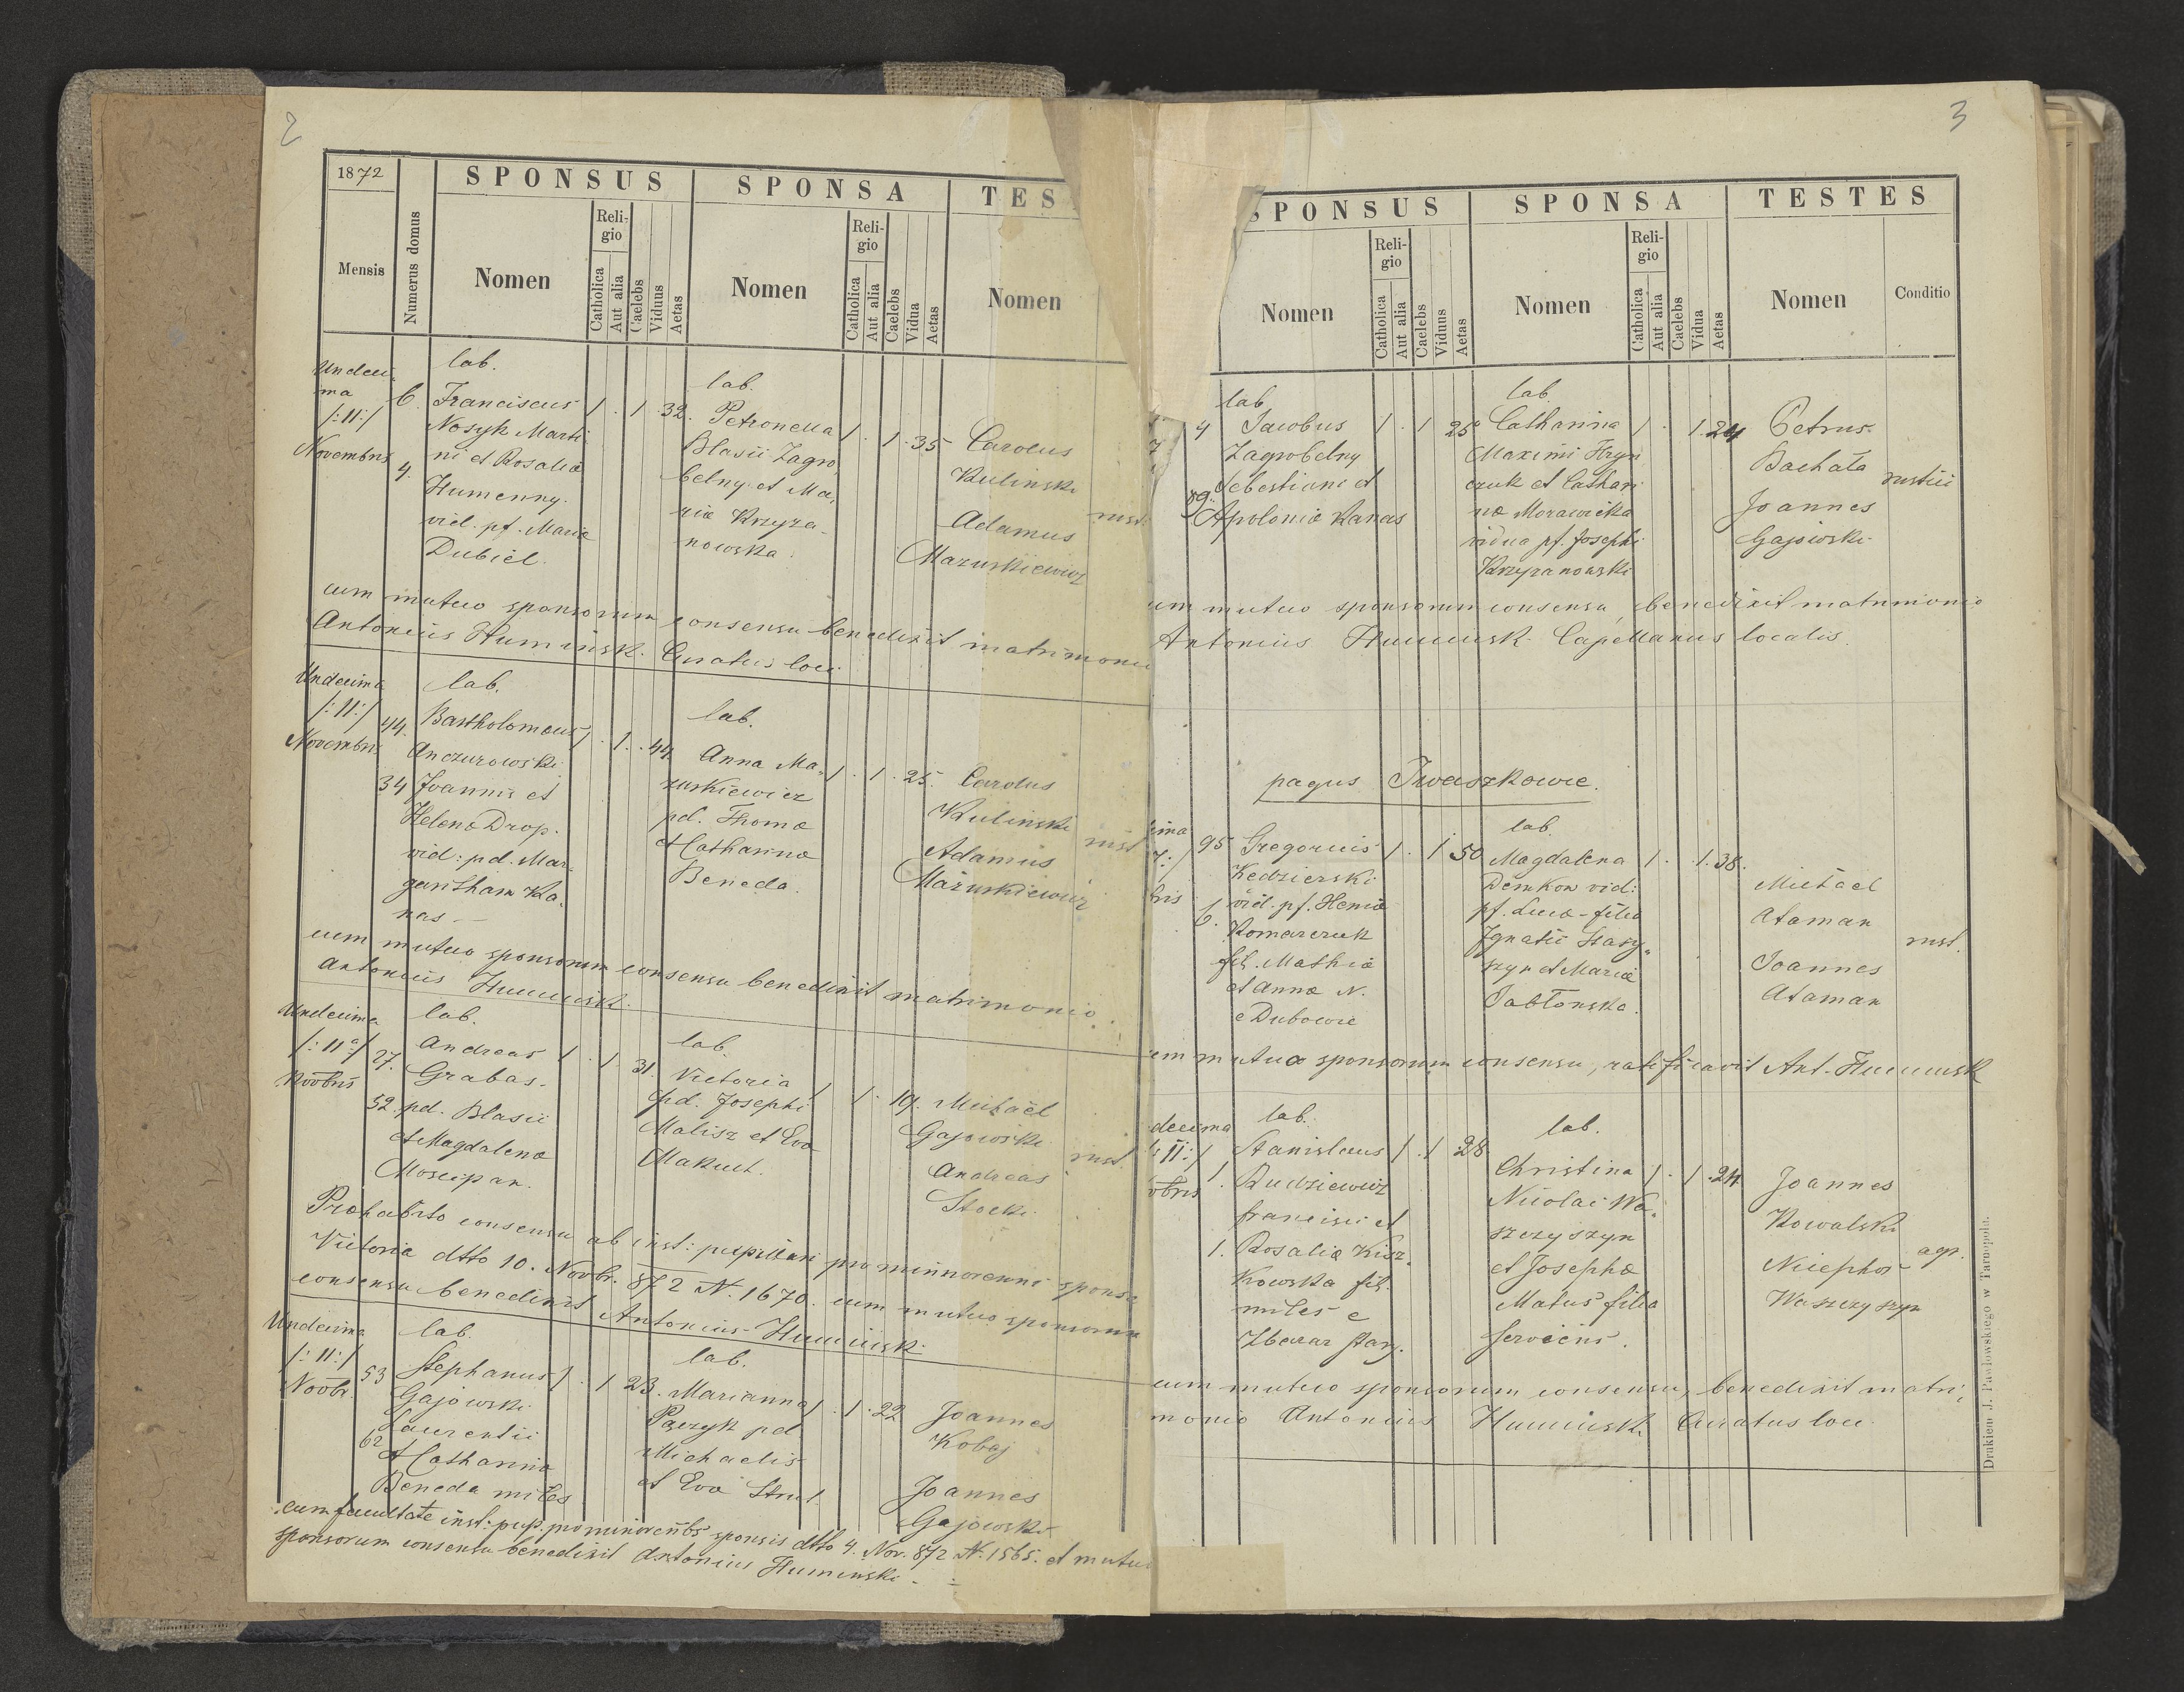 2
1872
SPONSUS
SPONSA
TES
Mensis
Numerus domus
Nomen
Religio
Catholica
Aut alia
Caelebs
Viduus
Aetas
Nomen
Religio
Catholica
Aut alia
Caelebs
Vidua
Aetas
Nomen
Undeci
ma
/:11:/
Novembris
6
4.
lab.
Franciscus
Nosyk Marti
ni et Rosaliæ
Humenny.
vid. pf. Mariæ
Dubiel.
1 . 1 . 32.
lab.
Petronella
Blasii Zagro
belny et Ma,
riæ Krzyza
nowska.
1 . 1 . 35
Carolus
Kulinski
Adamus
Mazurkiewicz
rust.
cum mutuo sponsorum consensu benedixit matrimonio
Antonius Huminsk. Curatus loci
Undecima
/:11:/
Novembris
44.
34
lab.
Bartholomæus
Anczurowski
Joannis et
Helenæ Drop.
vid: pd. Mar
garitham Ka.
nas —
1 . 1 . 44
lab.
Anna Ma,
zurkiewicz
pd. Thomæ
et Catharinæ
Beneda.
1 . 1 . 25.
Carolus
Kulinski
Adamus
Mazurkiewicz
rust
cum mutuo sponsorum consensu benedixit matrimonio.
Antonius Huminsk.
Undecima
/:11ª:/
Novbris
27.
52.
lab.
Andreas
Grabas.
pd. Blasii
et Magdalenæ
Moscipan.
1 . 1 . 31.
lab.
Victoria
pd. Josephi
Malisz et Evæ
Makuct.
1 1 . 19.
Michaël
Gajowski
Andreas
Stocki
rust.
Præhabito consensu ab inst: pupillari pro minorenni sponsa
Victoria dtto 10. Novbr. 872 N. 1670. cum mutuo sponsorum
consensu benedixit Antonius Huminsk.
Undecima
/:11:/
Novbr.
53
62
lab.
Stephanus
Gajowski
Laurentii
et Catharinæ
Beneda miles
1 . 1 23.
lab.
Marianna
Paczyk pd.
Michaelis
et Evæ Strut.
1 . 1 . 22
Joannes
Kobaj
Joannes
Gajowski
cum facultate inst: pup. pro minorenbs sponsis dtto 4. Nov. 872 N. 1565. et mutuo
sponsorum consensu benedixit Antonius Huminski.
3
SPONSUS
SPONSA
TESTES
Nomen
Religio
Catholica
Aut alia
Caelebs
Viduus
Aetas
Nomen
Religio
Catholica
Aut alia
Caelebs
Vidua
Aetas
Nomen
Conditio
4
89.
lab
Jacobus
Zagrobelny
Sebastiani et
Apoloniæ Kanas
1 . 1 25
lab
Catharina
Maximi Hryn
czuk et Cathari
næ Morawicka
vidua pf. Josephi
Krzyzanowski
1 . 1. 24
Petrus
Bachała
Joannes
Gajowski
rustici
um mutuo sponsorum consensu, benedixit matrimonio
Antonius Huminsk. Capellanus localis.
pagus Iwaszkowce.
ima
7:/
bris
95
6.
Gregorius
Kedzierski
vid. pf. Heniæ
Komarczuk
fil. Mathiæ
et Annæ N.
e Dubowce
1 . 1 50
lab.
Magdalena
Demkow vid:
pf. Lucæ - filia
Ignatii Hary,
szyn et Mariæ
Jabłonska.
1 . . 1. 38.
Michael
Ataman
Joannes
Ataman
rust.
um mutuo sponsorum consensu, ratificavit Ant. Huminsk
decima
/:11:/
vbris
1.
1.
lab.
Stanislaus
Rudziewicz
francisci et
Rosaliæ Kisz,
kowska fil.
miles e
Zbaraz stary.
1 . 1 28
lab.
Christina
Nicolai Wa,
szczyszyn
et Josephæ
Matus filia
serviens.
1 . 1 . 24
Joannes
Kowalski
Nicephor
Waszczyszyn
agr.
cum mutuo sponsorum consensu, benedixit matri,
monio Antonius Huminsk. Curatus loci
Drukiem J. Pawłowskiego w Tarnopolu.